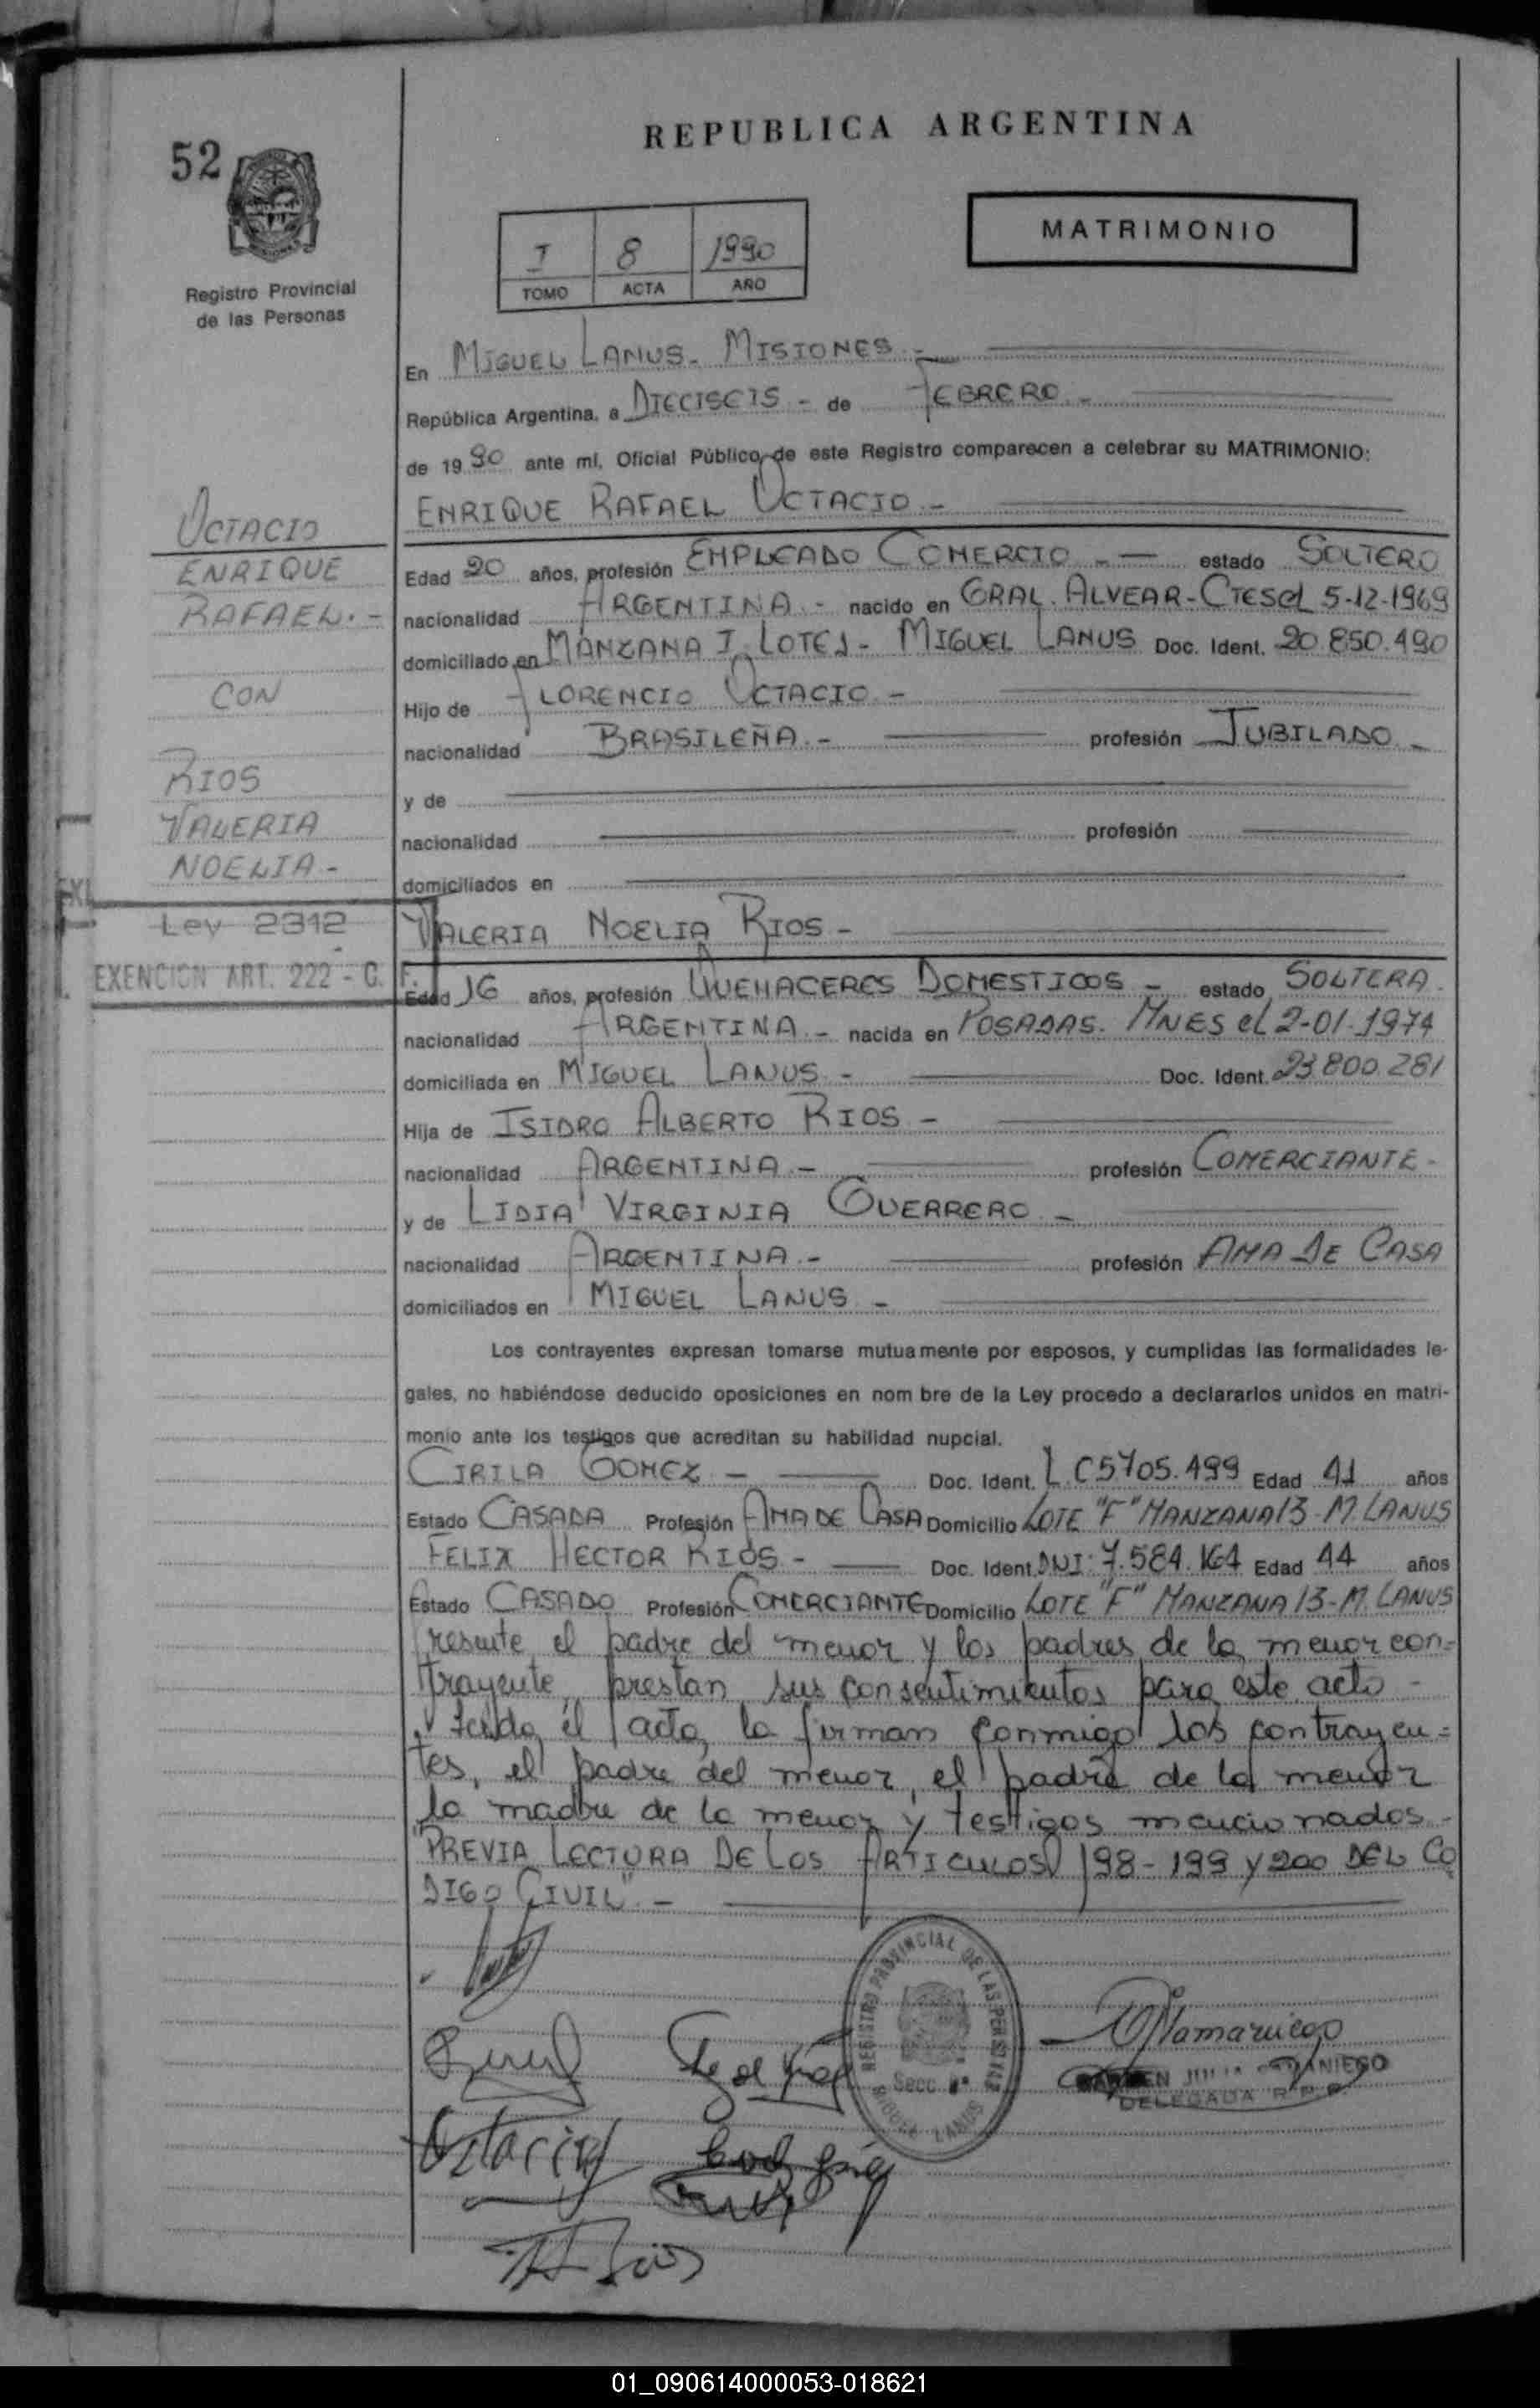 REPUBLICA ARGENTINA
52
MATRIMONIO
I 8 1990
TOMO ACTA AÑO
Registro Provincial
de las Personas
En MIGUEL LANUS - MISIONES -
República Argentina, a DIECISEIS - de FEBRERO -
de 19 90 ante mí, Oficial Público de este Registro comparecen a celebrar su MATRIMONIO:
ENRIQUE RAFAEL OCTACIO -
OCTACIO
ENRIQUE
RAFAEL. -
CON
RIOS
VALERIA
NOELIA -
Ley 2312
EXENCION ART. 222 - C. F.
Edad 20 años, profesión EMPLEADO COMERCIO - estado SOLTERO
nacionalidad ARGENTINA - nacido en GRAL. ALVEAR - CTES el 5-12-1969
domiciliado en MANZANA I LOTE J - MIGUEL LANUS Doc. Ident. 20.850.490
Hijo de FLORENCIO OCTACIO. -
nacionalidad BRASILEÑA. - profesión JUBILADO -
y de
nacionalidad profesión
domiciliados en
VALERIA NOELIA RIOS -
Edad 16 años, profesión QUEHACERES DOMESTICOS - estado SOLTERA.
nacionalidad ARGENTINA. - nacida en POSADAS. MNES el 2-01-1974
domiciliada en MIGUEL LANUS - Doc. Ident. 23.800.281
Hija de ISIDRO ALBERTO RIOS -
nacionalidad ARGENTINA. - profesión COMERCIANTE -
y de LIDIA VIRGINIA GUERRERO -
nacionalidad ARGENTINA. - profesión AMA DE CASA
domiciliados en MIGUEL LANUS -
Los contrayentes expresan tomarse mutuamente por esposos, y cumplidas las formalidades le-
gales, no habiéndose deducido oposiciones en nom bre de la Ley procedo a declararlos unidos en matri-
monio ante los testigos que acreditan su habilidad nupcial.
CIRILA GOMEZ - Doc. Ident. L.C 5705.499 Edad 41 años
Estado CASADA Profesión AMA DE CASA Domicilio LOTE "F" MANZANA 13 - M. LANUS
FELIX HECTOR RIOS - Doc. Ident. DNI: 7.584.164 Edad 44 años
Estado CASADO Profesión COMERCIANTE Domicilio LOTE "F" MANZANA 13 - M. LANUS
Presente el padre del menor y los padres de la menor con=
trayente, prestan sus consentimientos para este acto -
Leida el acta, la firman conmigo los contrayen=
tes, el padre del menor, el padre de la menor
la madre de la menor y testigos mencionados -
"PREVIA LECTURA DE LOS ARTICULOS 198 - 199 Y 200 DEL CO
DIGO CIVIL" -
REGISTRO PROVINCIAL DE LAS PERSONAS
Secc. Nº
MIGUEL LANUS
DELEGADA R.P.P.
Octacio
01_090614000053-018621